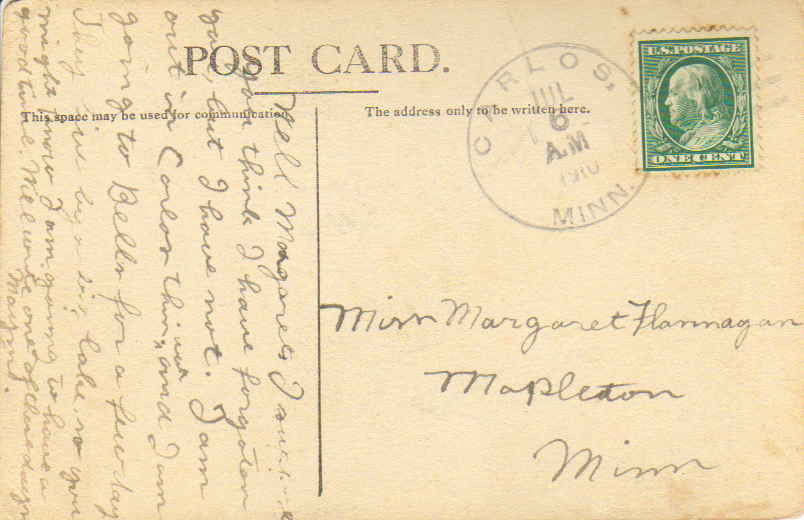 POST CARD.
This space may be used for communication.
The address only to be written here.
CARLOS,
JUL
6
A.M
1910
MINN.
U.S. POSTAGE
ONE CENT
Miss Margaret Flannagan
Mapleton
Minn
Well Margaret I
you think I have forgoten
you, but I have not. I am
out in Carlos this, week and I am
going to Bells for a few day
They live by a big lake, so you
might know I am going to have a
good time. Well write one of these days